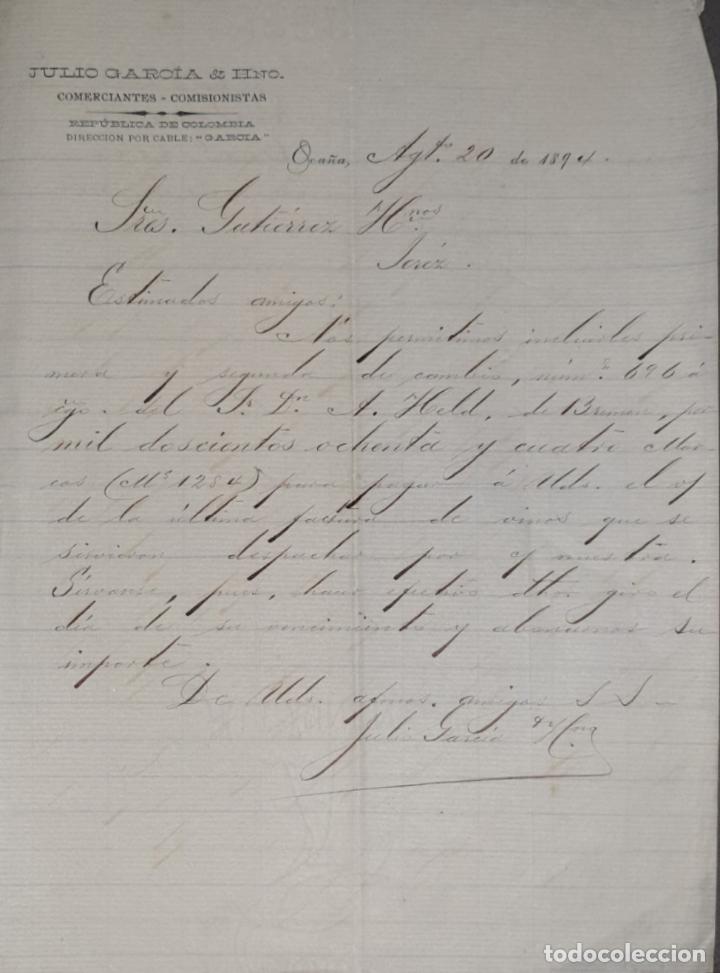 JULIO GARCÍA & HNO.
COMERCIANTES - COMISIONISTAS
REPÚBLICA DE COLOMBIA
DIRECCION POR CABLE: "GARCIA"
Ocaña, Agto. 20 de 1894.
Sres. Gutiérrez Hnos.
Jeréz.
Estimados amigos:
Nos permitimos incluirles pri-
mera y segunda de cambio, núm. 696 á
cgo. del Sr. Dn. A. Held, de Bremen, por
mil doscientos ochenta y cuatro Mar-
cos (Ms 1284) para pagar á Uds. el v/
de la última factura de vinos que se
sirvieron despachar por c/ nuestra.
Sírvanse, pues, hacer efectivo dho. giro el
día de su vencimiento y abonarnos su
importe.
De Uds. afmos. amigos S S
Julio García & Hno
todocoleccion.net